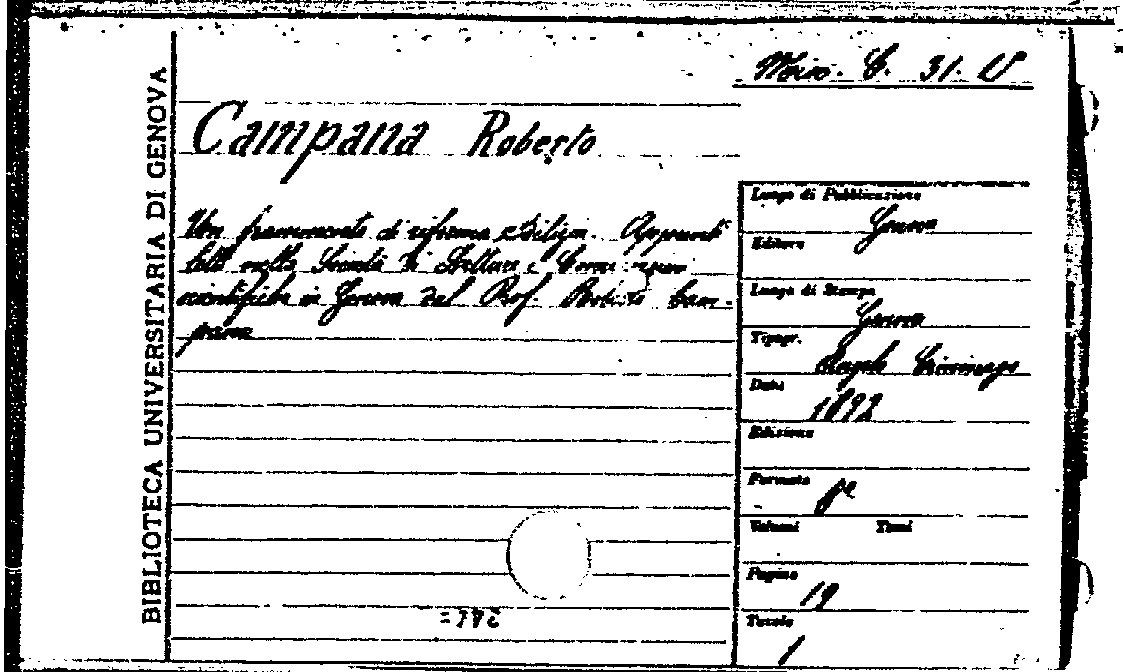 BIBLIOTECA UNIVERSITARIA DI GENOVA
Misc. C. 31. 15
Campana Roberto
Un frammento di riforma edilizia. Appunti
letti nella Società di Letture e Conversazioni
scientifiche in Genova dal Prof. Roberto Cam-
pana
Luogo di Pubblicazione
Genova
Editore
Luogo di Stampa
Genova
Tipogr.
Angelo Ciminago
Data
1892
Edizione
Formato
8º
Volumi Tomi
Pagine
19
Tavole
1